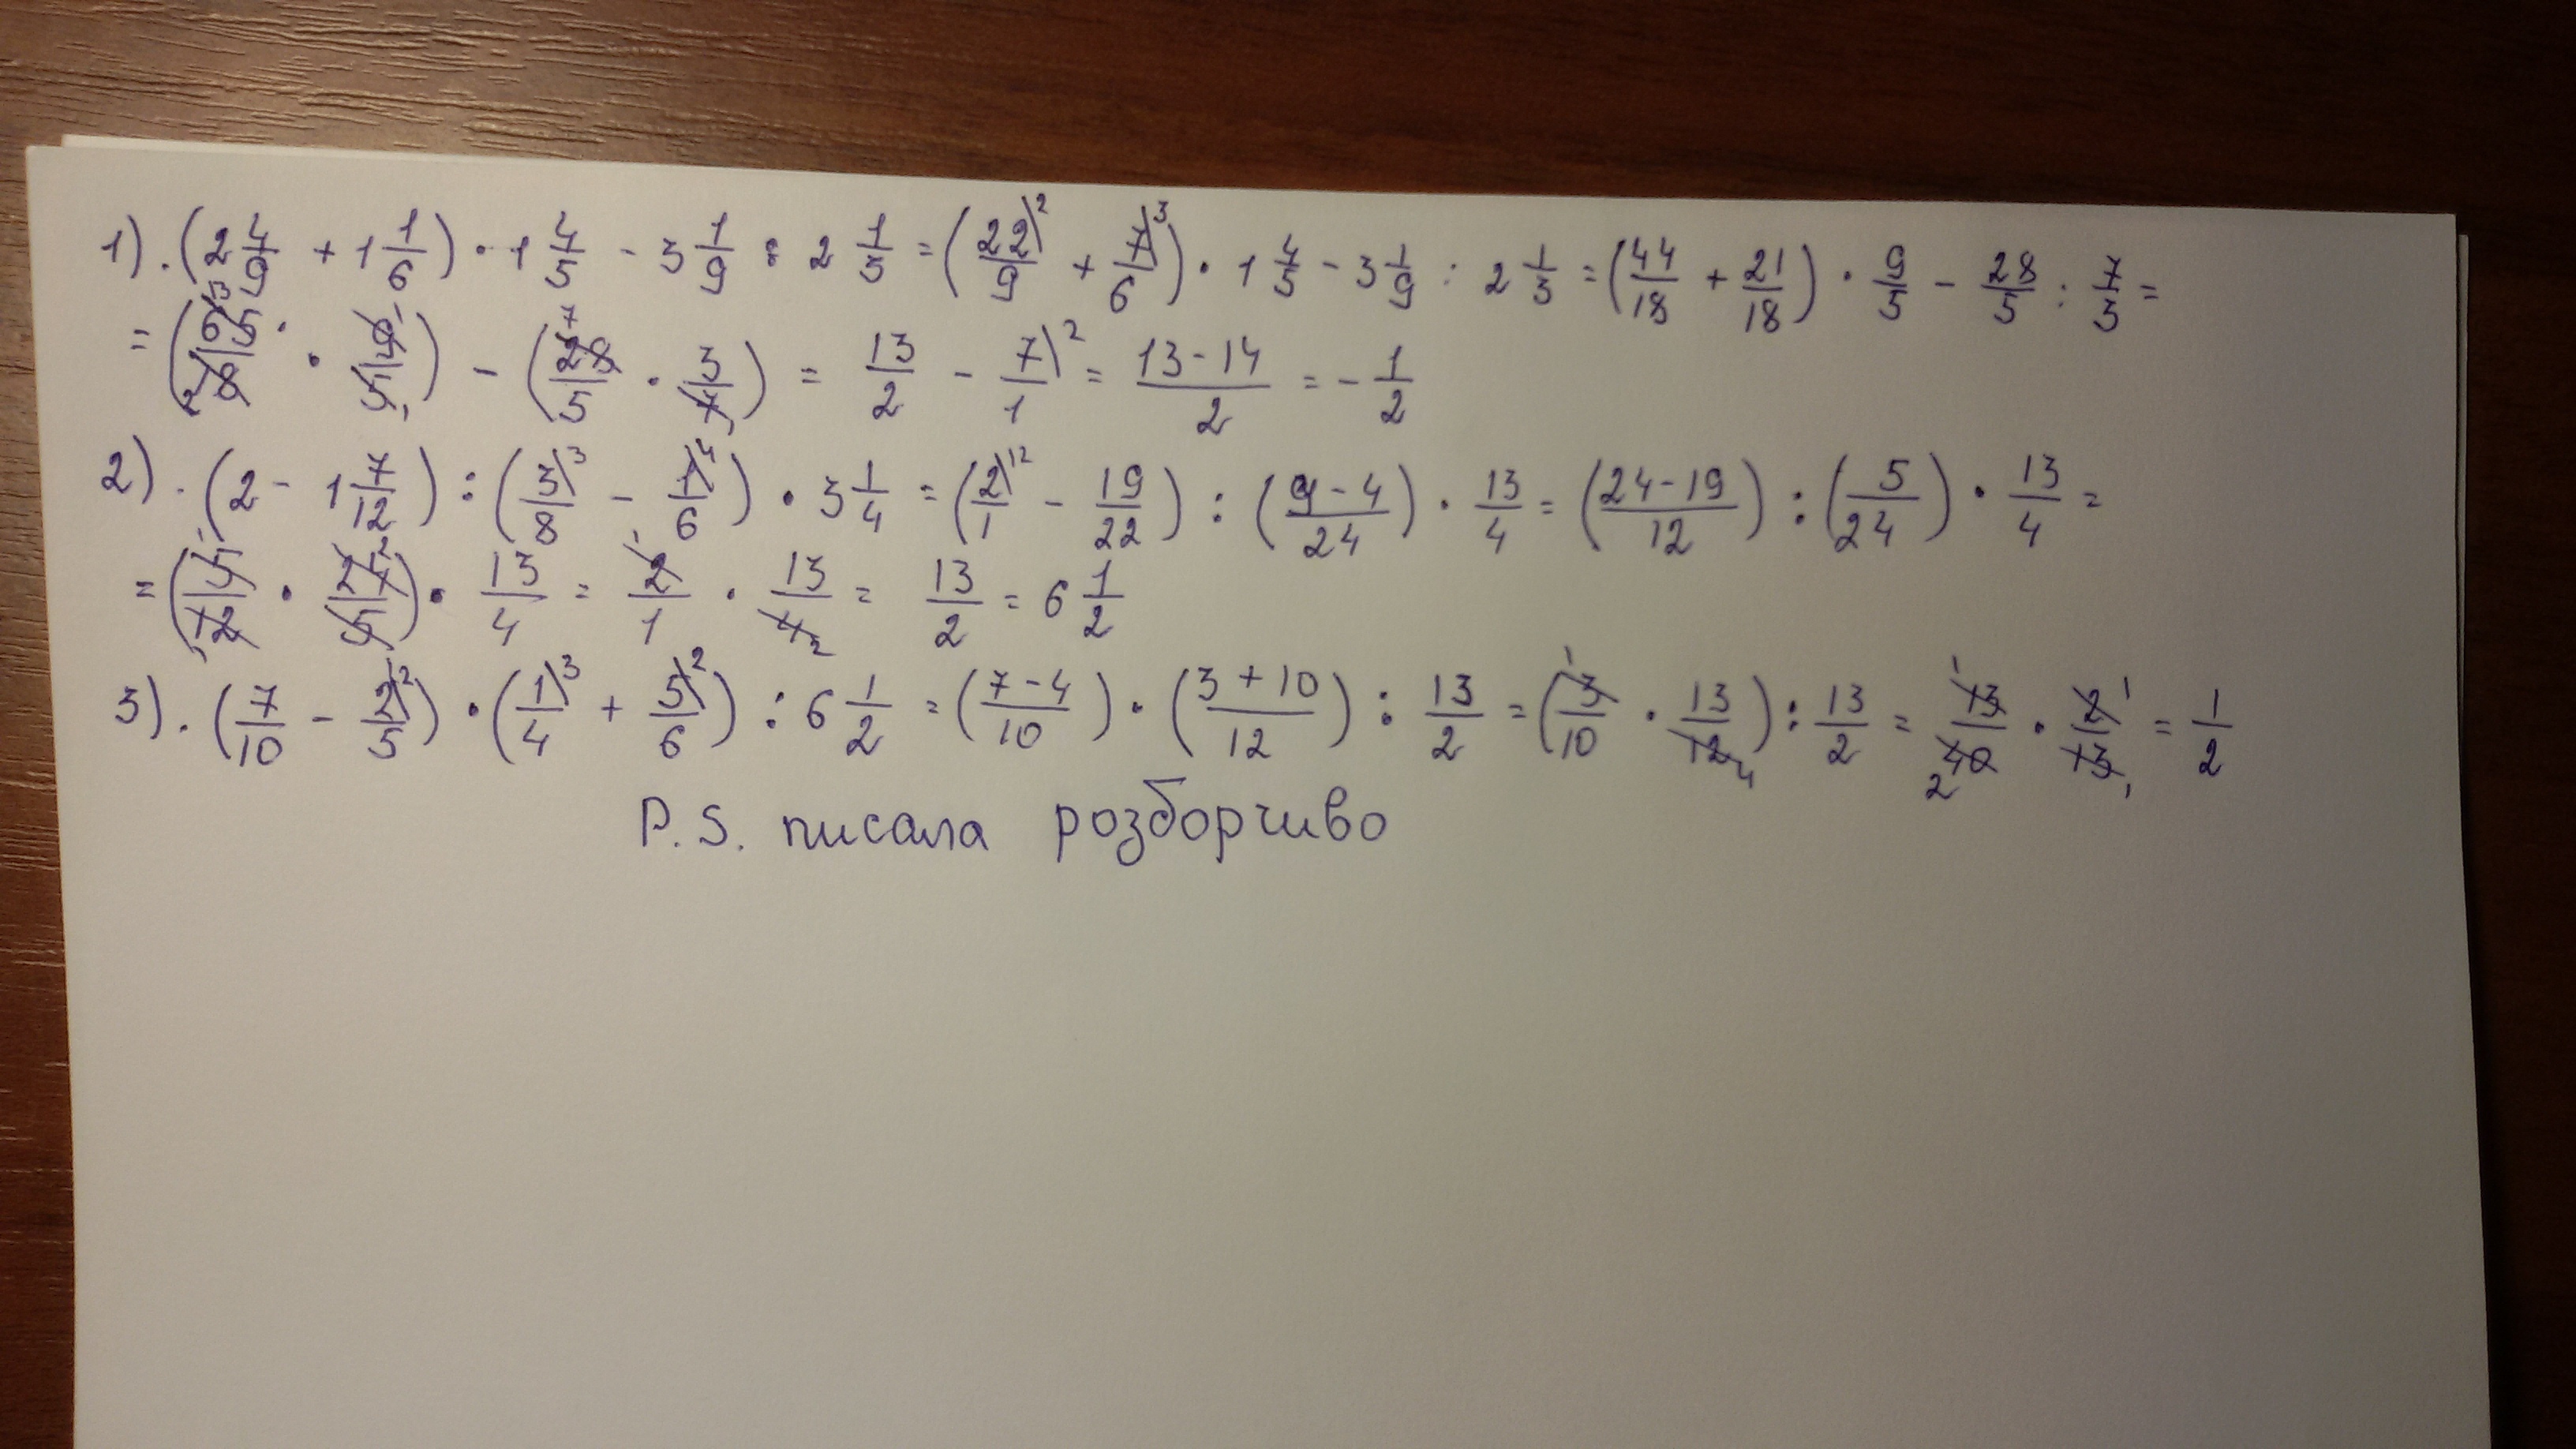 1). (2 4/9 + 1 1/6) · 1 4/5 - 3 1/9 : 2 1/3 = (22/9 )² + 7/6 )³) · 1 4/5 - 3 1/9 : 2 1/3 = (44/18 + 21/18) · 9/5 - 28/5 : 7/3 =
= (65/18 · 9/5) - (28/5 · 3/7) = 13/2 - 7/1 )² = 13-14/2 = - 1/2
2). (2 - 1 7/12) : (3/8 )³ - 1/6 )⁴) · 3 1/4 = (2/1 )¹² - 19/22) : (9-4/24) · 13/4 = (24-19/12) : (5/24) · 13/4 =
= (5/12 · 24/5) · 13/4 = 2/1 · 13/4 = 13/2 = 6 1/2
3). (7/10 - 2/5 )²) · (1/4 )³ + 5/6 )²) : 6 1/2 = (7-4/10) · (3+10/12) : 13/2 = (3/10 · 13/12) : 13/2 = 13/40 · 2/13 = 1/2
P.S. писала розборчиво